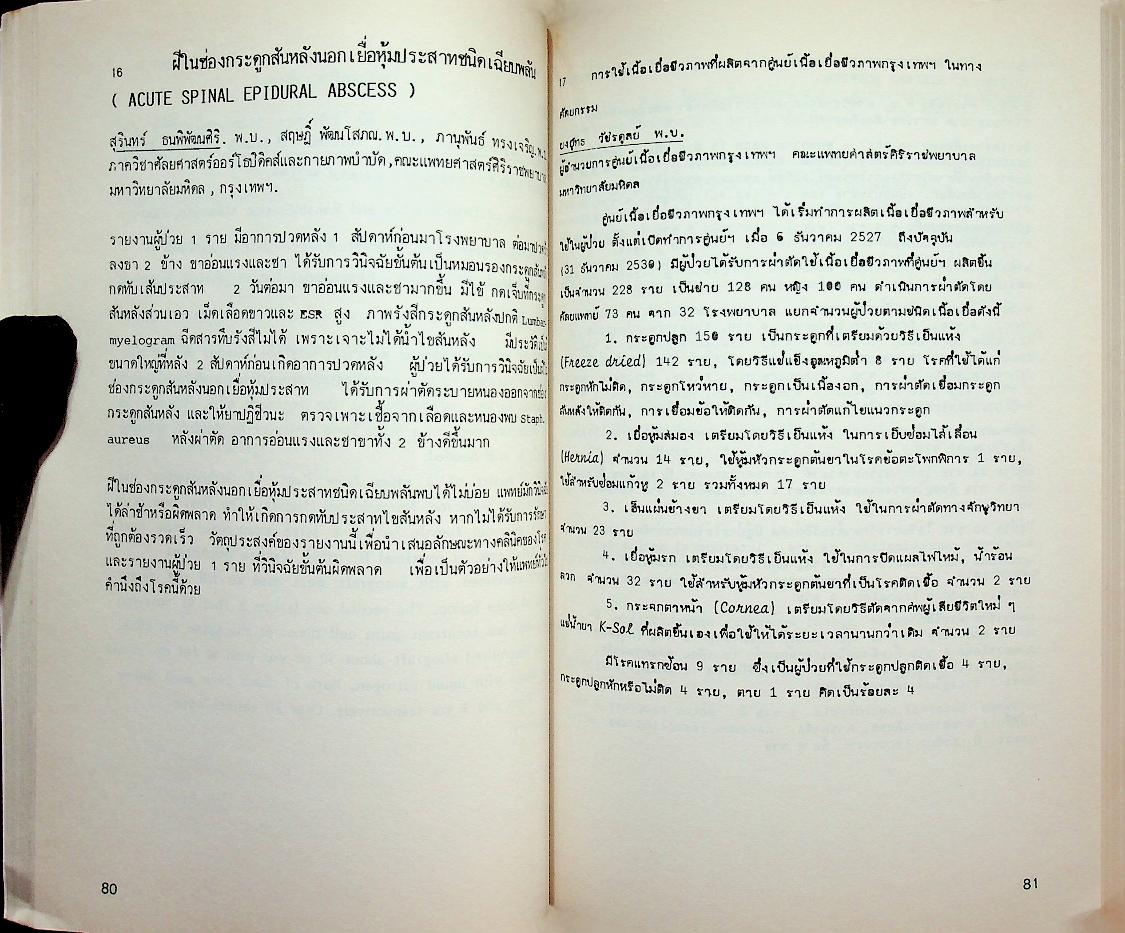 16 ฝีในช่องกระดูกสันหลังนอกเยื่อหุ้มประสาทชนิดเฉียบพลัน
( ACUTE SPINAL EPIDURAL ABSCESS )
สุรินทร์ ธนพิพัฒนศิริ. พ.บ., สฤษฎิ์ พัฒนโสภณ.พ.บ., ภานุพันธ์ ทรงเจริญ.พ.บ.
ภาควิชาศัลยศาสตร์ออร์โธปิดิคส์และกายภาพบำบัด,คณะแพทยศาสตร์ศิริราชพยาบาล
มหาวิทยาลัยมหิดล , กรุงเทพฯ.
รายงานผู้ป่วย 1 ราย มีอาการปวดหลัง 1 สัปดาห์ก่อนมาโรงพยาบาล ต่อมาปวดร้าว
ลงขา 2 ข้าง ขาอ่อนแรงและชา ได้รับการวินิจฉัยขั้นต้นเป็นหมอนรองกระดูกสันหลัง
กดทับเส้นประสาท 2 วันต่อมา ขาอ่อนแรงและชามากขึ้น มีไข้ กดเจ็บที่กระดูก
สันหลังส่วนเอว เม็ดเลือดขาวและ ESR สูง ภาพรังสีกระดูกสันหลังปกติ Lumbar
myelogram ฉีดสารทึบรังสีไม่ได้ เพราะเจาะไม่ได้น้ำไขสันหลัง มีประวัติเป็น
ขนาดใหญ่ที่หลัง 2 สัปดาห์ก่อนเกิดอาการปวดหลัง ผู้ป่วยได้รับการวินิจฉัยเป็นฝีใน
ช่องกระดูกสันหลังนอกเยื่อหุ้มประสาท ได้รับการผ่าตัดระบายหนองออกจากช่อง
กระดูกสันหลัง และให้ยาปฏิชีวนะ ตรวจเพาะเชื้อจากเลือดและหนองพบ Staph.
aureus หลังผ่าตัด อาการอ่อนแรงและชาขาทั้ง 2 ข้างดีขึ้นมาก
ฝีในช่องกระดูกสันหลังนอกเยื่อหุ้มประสาทชนิดเฉียบพลันพบได้ไม่บ่อย แพทย์มักวินิจฉัย
ได้ล่าช้าหรือผิดพลาด ทำให้เกิดการกดทับประสาทไขสันหลัง หากไม่ได้รับการรักษา
ที่ถูกต้องรวดเร็ว วัตถุประสงค์ของรายงานนี้เพื่อนำเสนอลักษณะทางคลินิคของโรค
และรายงานผู้ป่วย 1 ราย ที่วินิจฉัยขั้นต้นผิดพลาด เพื่อเป็นตัวอย่างให้แพทย์ทั่วไป
คำนึงถึงโรคนี้ด้วย
80
17 การใช้เนื้อเยื่อชีวภาพที่ผลิตจากศูนย์เนื้อเยื่อชีวภาพกรุงเทพฯ ในทาง
ศัลยกรรม
ยงยุทธ วัชรดุลย์ พ.บ.
ผู้อำนวยการศูนย์เนื้อเยื่อชีวภาพกรุงเทพฯ คณะแพทยศาสตร์ศิริราชพยาบาล
มหาวิทยาลัยมหิดล
ศูนย์เนื้อเยื่อชีวภาพกรุงเทพฯ ได้เริ่มทำการผลิตเนื้อเยื่อชีวภาพสำหรับ
ใช้ในผู้ป่วย ตั้งแต่เปิดทำการศูนย์ฯ เมื่อ 6 ธันวาคม 2527 ถึงปัจจุบัน
(31 ธันวาคม 2530) มีผู้ป่วยได้รับการผ่าตัดใช้เนื้อเยื่อชีวภาพที่ศูนย์ฯ ผลิตขึ้น
เป็นจำนวน 228 ราย เป็นชาย 128 คน หญิง 100 คน ดำเนินการผ่าตัดโดย
ศัลยแพทย์ 73 คน จาก 32 โรงพยาบาล แยกจำนวนผู้ป่วยตามชนิดเนื้อเยื่อดังนี้
1. กระดูกปลูก 150 ราย เป็นกระดูกที่เตรียมด้วยวิธีเย็นแห้ง
(Freeze dried) 142 ราย, โดยวิธีแช่แข็งอุณหภูมิต่ำ 8 ราย โรคที่ใช้ได้แก่
กระดูกหักไม่ติด, กระดูกโหว่หาย, กระดูกเป็นเนื้องอก, การผ่าตัดเชื่อมกระดูก
สันหลังให้ติดกัน, การเชื่อมข้อให้ติดกัน, การผ่าตัดแก้ไขแนวกระดูก
2. เยื่อหุ้มสมอง เตรียมโดยวิธีเย็นแห้ง ในการเย็บซ่อมไส้เลื่อน
(Hernia) จำนวน 14 ราย, ใช้หุ้มหัวกระดูกต้นขาในโรคข้อตะโพกพิการ 1 ราย,
ใช้สำหรับซ่อมแก้วหู 2 ราย รวมทั้งหมด 17 ราย
3. เอ็นแผ่นข้างขา เตรียมโดยวิธีเย็นแห้ง ใช้ในการผ่าตัดทางจักษุวิทยา
จำนวน 23 ราย
4. เยื่อหุ้มรก เตรียมโดยวิธีเย็นแห้ง ใช้ในการปิดแผลไฟไหม้, น้ำร้อน
ลวก จำนวน 32 ราย ใช้สำหรับหุ้มหัวกระดูกต้นขาที่เป็นโรคติดเชื้อ จำนวน 2 ราย
5. กระจกตาหน้า (Cornea) เตรียมโดยวิธีตัดจากศพผู้เสียชีวิตใหม่ ๆ
แช่น้ำยา K-Sol ที่ผลิตขึ้นเองเพื่อใช้ให้ได้ระยะเวลานานกว่าเดิม จำนวน 2 ราย
มีโรคแทรกซ้อน 9 ราย ซึ่งเป็นผู้ป่วยที่ใช้กระดูกปลูกติดเชื้อ 4 ราย,
กระดูกปลูกหักหรือไม่ติด 4 ราย, ตาย 1 ราย คิดเป็นร้อยละ 4
81